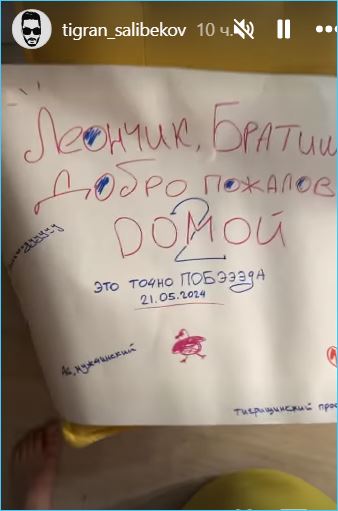 tigran_salibekov 10 ч.
Леончик, Братиш
Добро пожалов
Домой
2
это точно ПОБЭЭЭдА
21.05.2024
Ай, мужчинский
тигрицинский прос